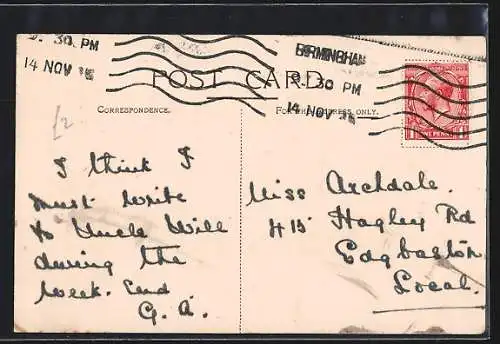 30 PM
14 NOV
BIRMINGHAM
30 PM
14 NOV
POST CARD
CORRESPONDENCE.
FOR THE ADDRESS ONLY.
ONE PENNY
£2
I think I
must write
to Uncle Will
during the
week. End
G. A.
Miss Archdale.
415 Hagley Rd
Edgbaston
Local.